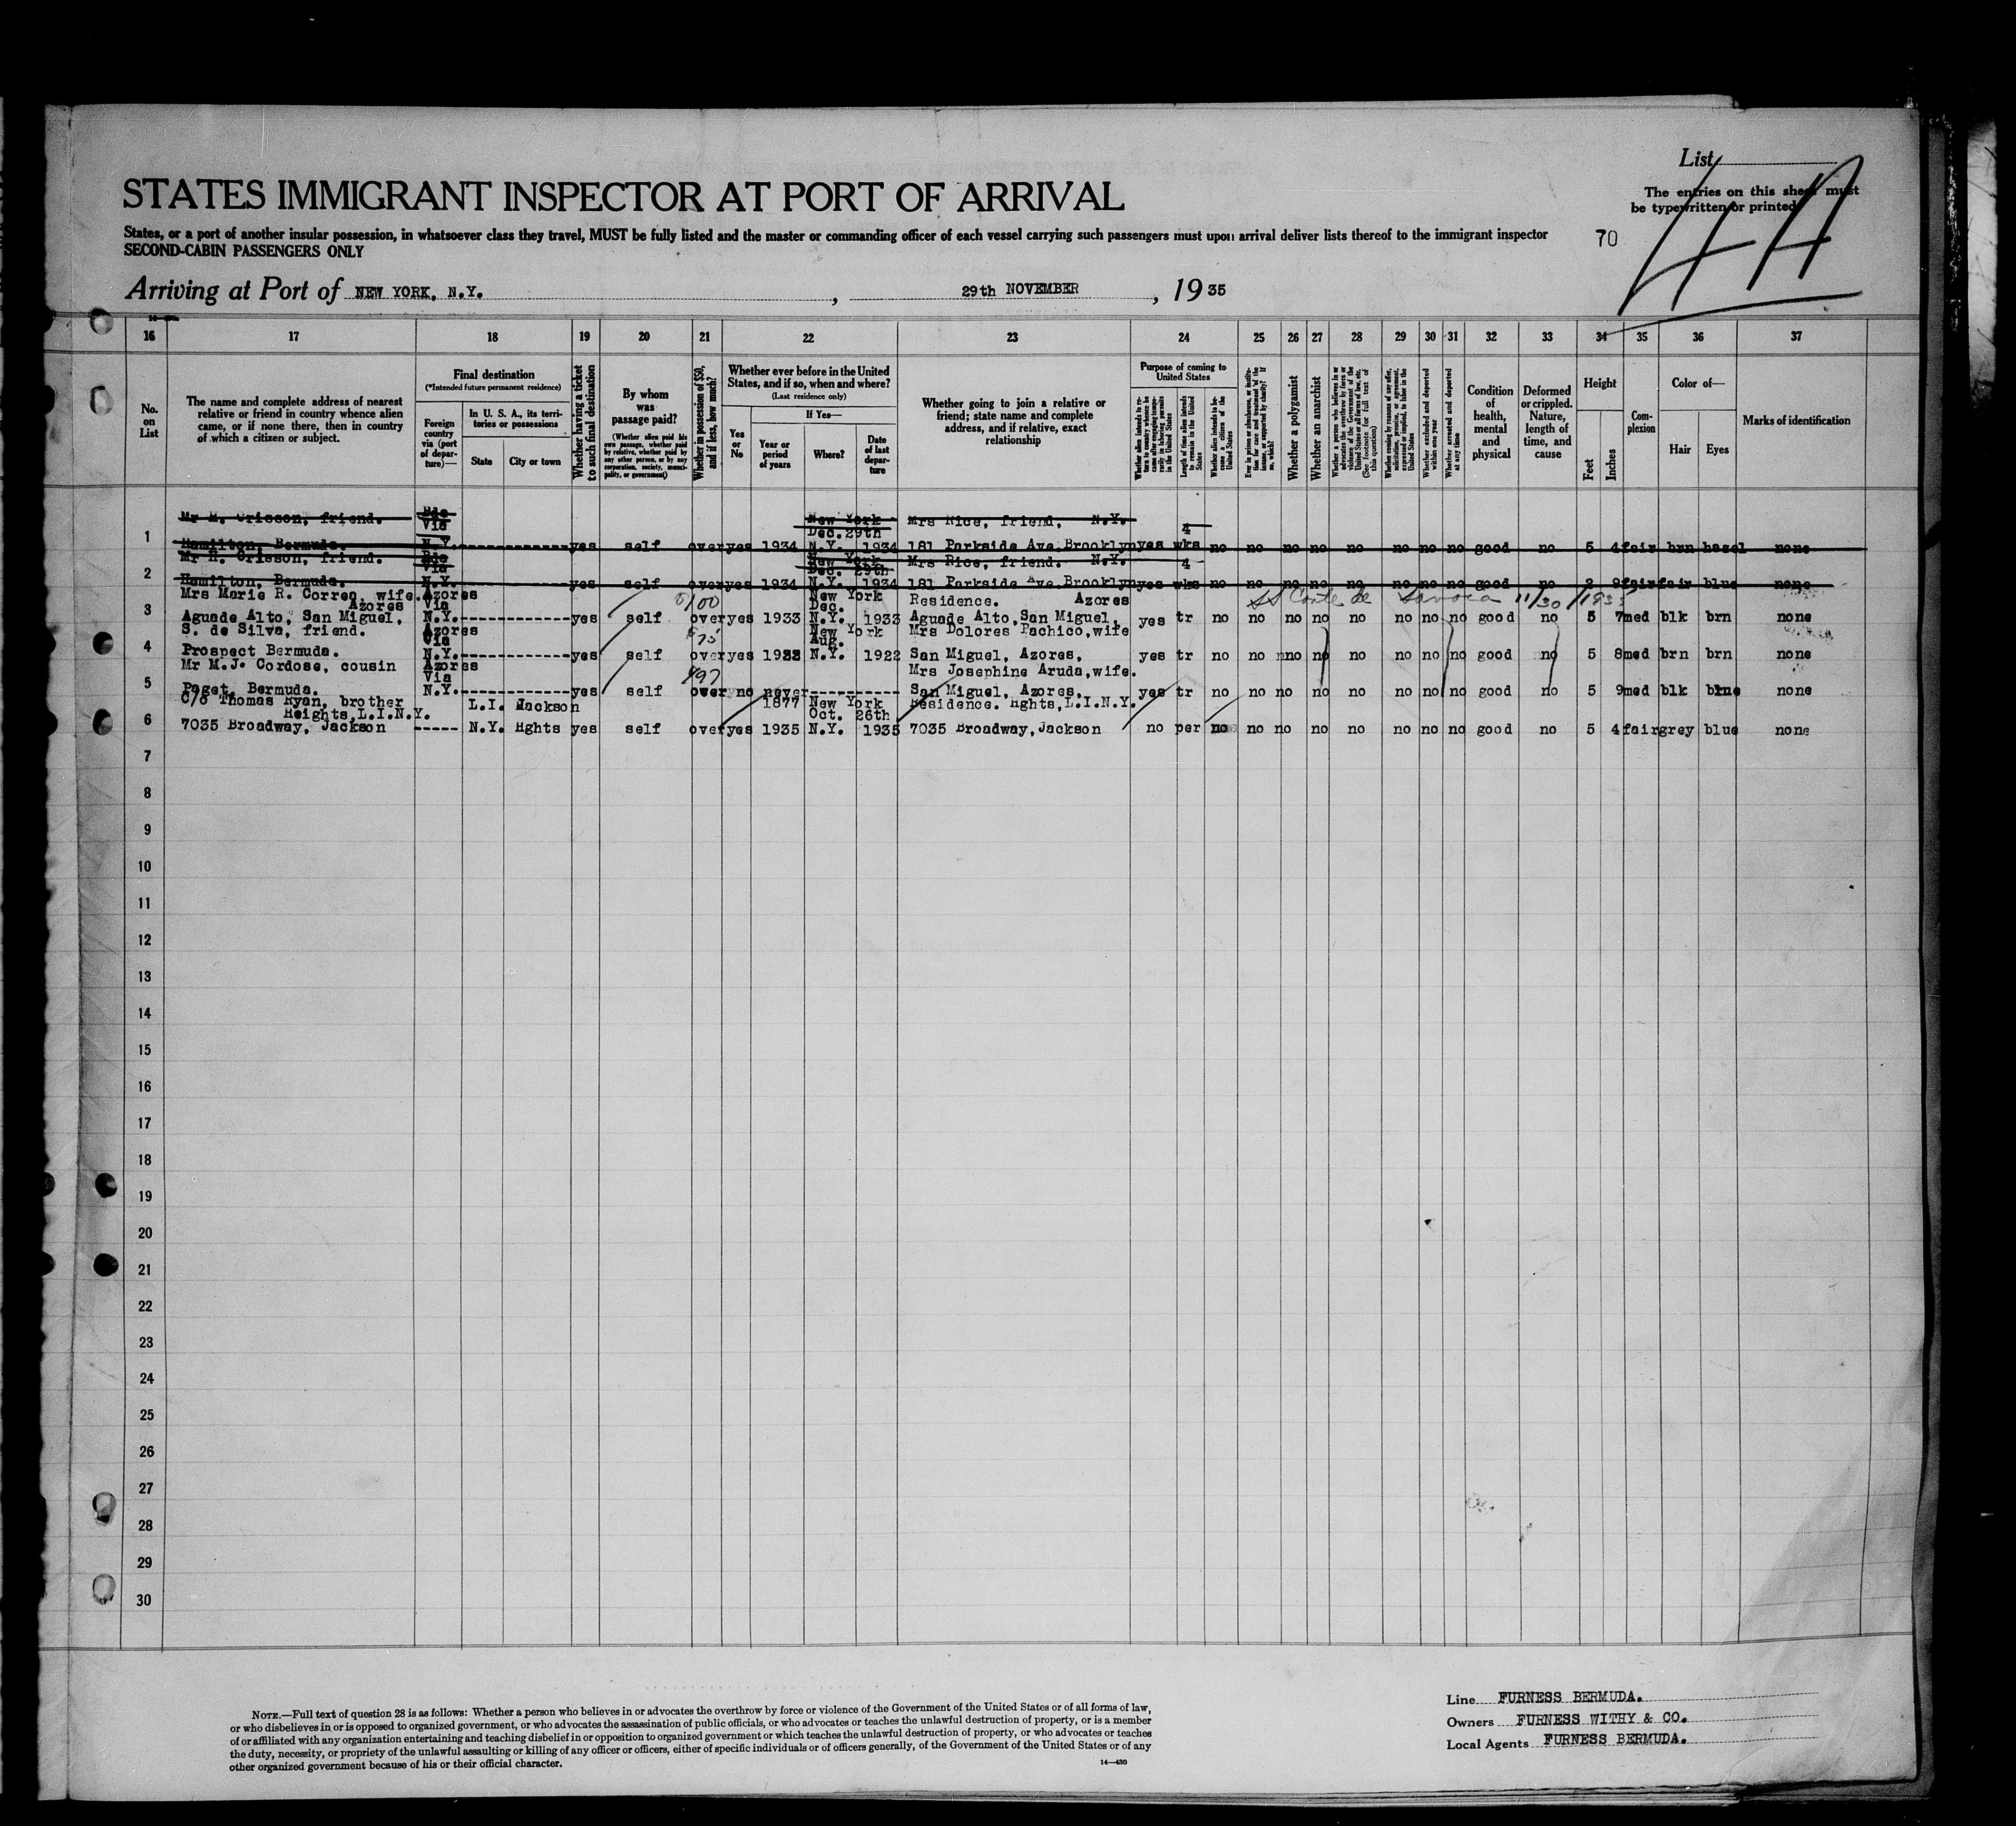 List
The entries on this sheet must
be typewritten or printed
44
70
STATES IMMIGRANT INSPECTOR AT PORT OF ARRIVAL
States, or a port of another insular possession, in whatsoever class they travel, MUST be fully listed and the master or commanding officer of each vessel carrying such passengers must upon arrival deliver lists thereof to the immigrant inspector
SECOND-CABIN PASSENGERS ONLY
Arriving at Port of NEW YORK, N.Y. , 29th NOVEMBER , 19 35
16 17 18 19 20 21 22 23 24 25 26 27 28 29 30 31 32 33 34 35 36 37
No. on List
The name and complete address of nearest relative or friend in country whence alien came, or if none there, then in country of which a citizen or subject.
Final destination
(*Intended future permanent residence)
Foreign country via (port of departure)—
In U. S. A., its territories or possessions
State
City or town
Whether having a ticket to such final destination
By whom was passage paid?
(Whether alien paid his own passage, whether paid by relative, whether paid by any other person, or by any corporation, society, municipality, or government)
Whether in possession of $50, and if less, how much?
Whether ever before in the United States, and if so, when and where?
(Last residence only)
Yes or No
If Yes—
Year or period of years
Where?
Date of last departure
Whether going to join a relative or friend; state name and complete address, and if relative, exact relationship
Purpose of coming to United States
Length of time alien intends to remain in the United States
Whether alien intends to become a citizen of the United States
Whether a polygamist
Whether an anarchist
Whether excluded and deported within one year
Whether arrested and deported at any time
Condition of health, mental and physical
Deformed or crippled. Nature, length of time, and cause
Height
Feet
Inches
Complexion
Color of—
Hair
Eyes
Marks of identification
Mr M. Crisson, friend. Bda Via New York Dec.29th Mrs Rice, friend, N.Y. 4
1 Hamilton, Bermuda. N.Y.------------yes self over yes 1934 N.Y. 1934 181 Parkside Ave.Brooklyn yes wks no no no no no no no no good no 5 4 fair brn hazel none
Mr R. Crisson, friend. Bda Via New York Dec. 29th Mrs Rice, friend. N.Y. 4
2 Hamilton, Bermuda. N.Y.------------yes self over yes 1934 N.Y. 1934 181 Parkside Ave.Brooklyn yes wks no no no no no no no no good no 2 9 fair fair blue none
Mrs Marie R. Correa, wife. Azores 100 New York Residence. Azores SS Conte de Savoia 11/30/1935
Azores Via Dec.
3 Aguade Alto, San Miguel, N.Y.------------yes self over yes 1933 N.Y. 1933 Aguade Alto, San Miguel, yes tr no no no no no no no no good no 5 7 med blk brn none
S. de Silva, friend. Azores Via 75 New York Aug. Mrs Dolores Pachico, wife
4 Prospect Bermuda. N.Y.------------yes self over yes N.Y. 1922 San Miguel, Azores, yes tr no no no no no no no no good no 5 8 med brn brn none
Mr M.J. Cordose, cousin Azores Via 497 Mrs Josephine Aruda, wife.
5 Paget, Bermuda. N.Y.------------yes self over no never---------- San Miguel, Azores, yes tr no no no no no no no no good no 5 9 med blk none
C/o Thomas Ryan, brother L.I. Jackson 1877 New York Residence. Hghts, L.I.N.Y.
Heights, L.I.N.Y. Oct. 26th
6 7035 Broadway, Jackson ----- N.Y. Hghts yes self over yes 1935 N.Y. 1935 7035 Broadway, Jackson no per no no no no no no no no good no 5 4 fair grey blue none
7
8
9
10
11
12
13
14
15
16
17
18
19
20
21
22
23
24
25
26
27
28
29
30
NOTE.—Full text of question 28 is as follows: Whether a person who believes in or advocates the overthrow by force or violence of the Government of the United States or of all forms of law,
or who disbelieves in or is opposed to organized government, or who advocates the assassination of public officials, or who advocates or teaches the unlawful destruction of property, or is a member
of or affiliated with any organization entertaining and teaching disbelief in or opposition to organized government or which teaches the unlawful destruction of property, or who advocates or teaches
the duty, necessity, or propriety of the unlawful assaulting or killing of any officer or officers, either of specific individuals or of officers generally, of the Government of the United States or of any
other organized government because of his or their official character.
14—430
Line FURNESS BERMUDA.
Owners FURNESS WITHY & CO.
Local Agents FURNESS BERMUDA.